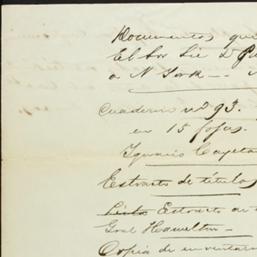 Documentos que
El Sor Lic D
a N York —
Cuaderno no 93.
en 15 fojas.
Ygnacio Cayeta
Estracto de titulos
Lista Estracto de
Gral Hamilton
Copia de inventario